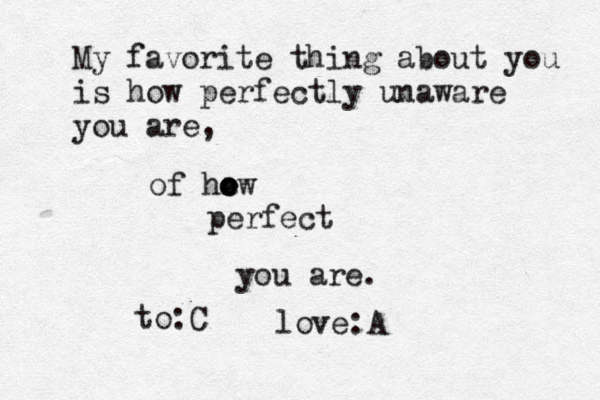 My favorite thing about you
is how perfectly unaware
you are,
of how
perfect
you are.
to:C love:A